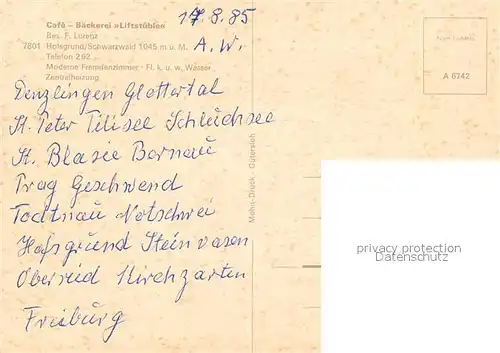 Café – Bäckerei »Liftstüble«
Bes. F. Lorenz
7801 Hofsgrund/Schwarzwald 1045 m ü. M.
Telefon 2 62
Moderne Fremdenzimmer · Fl. k. u. w. Wasser
Zentralheizung
17.8.85
A.W.
A 6742
Denzlingen Glottertal
St. Peter Titisee Schluchsee
St. Blasie Bernau
Prag Geschwend
Todtnau Notschrei
Hofsgrund Steinwasen
Oberried Kirchzarten
Freiburg
Mohn-Druck · Gütersloh
privacy protection
Datenschutz